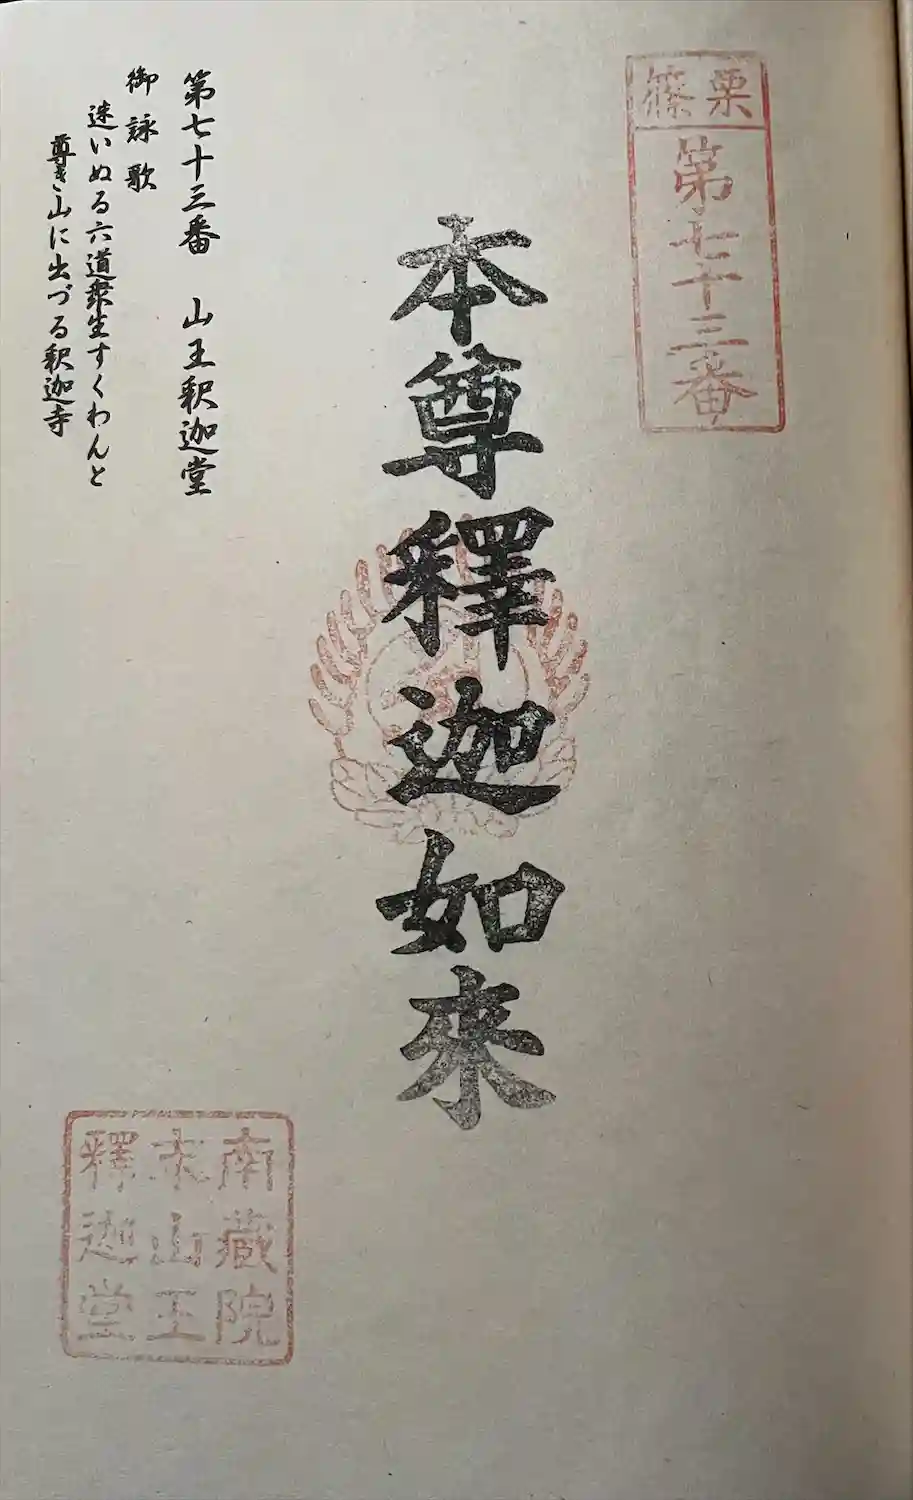 篠栗
第七十三番
本尊釋迦如来
第七十三番 山王釈迦堂
御詠歌
迷いぬる六道衆生すくわんと
尊き山に出づる釈迦寺
南蔵院
末山王
釋迦堂